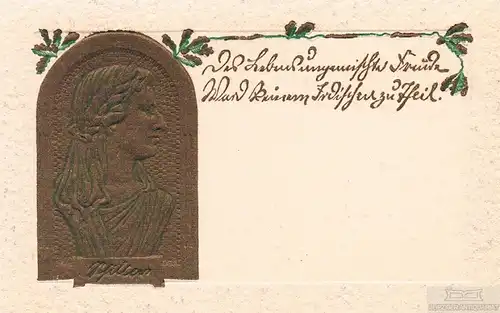 Des Lebens ungemischte Freude
Ward keinem Irdischen zu Theil.
Schiller